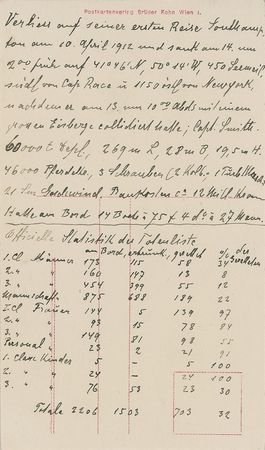 Postkartenverlag Brüder Kohn Wien I.
Verliess auf seiner ersten Reise Southamp-
ton am 10. April 1912 und sank am 14. um
2.00 früh auf 41°46' N. 50°14' W 450 Seemeil.
südl. von Cap Race u 1150 östl. von Newyork,
nachdem er am 13. um 10h Abds mit einem
grossen Eisberge collidiert hatte; Capt. Smith.
60000 t Depl., 269 m L, 28 m B, 19.5 m H.
46000 Pferdekr, 3 Schrauben (2 Kolb, 1 Turb)
21 Sm Geschwind. Baukosten ca 12 Mill.
Hatte am Bord 14 Boote à 75 & 4 do à 27 Mann.
Officielle Statistik der Totenliste
am Bord, ertrunk, gerettet % der Geretteten
1. Cl Männer 173 115 58 34
2. " " 160 147 13 8
3. " " 454 399 55 12
Mannschaft " 875 688 189 22
I. Cl Frauen 144 5 139 97
2. " " 93 15 78 84
3. " " 179 81 98 55
Personal " 23 2 21 91
1. Classe Kinder 5 – 5 100
2. " " 24 – 24 100
3. " " 76 53 23 30
Totale 2206 1503 703 32